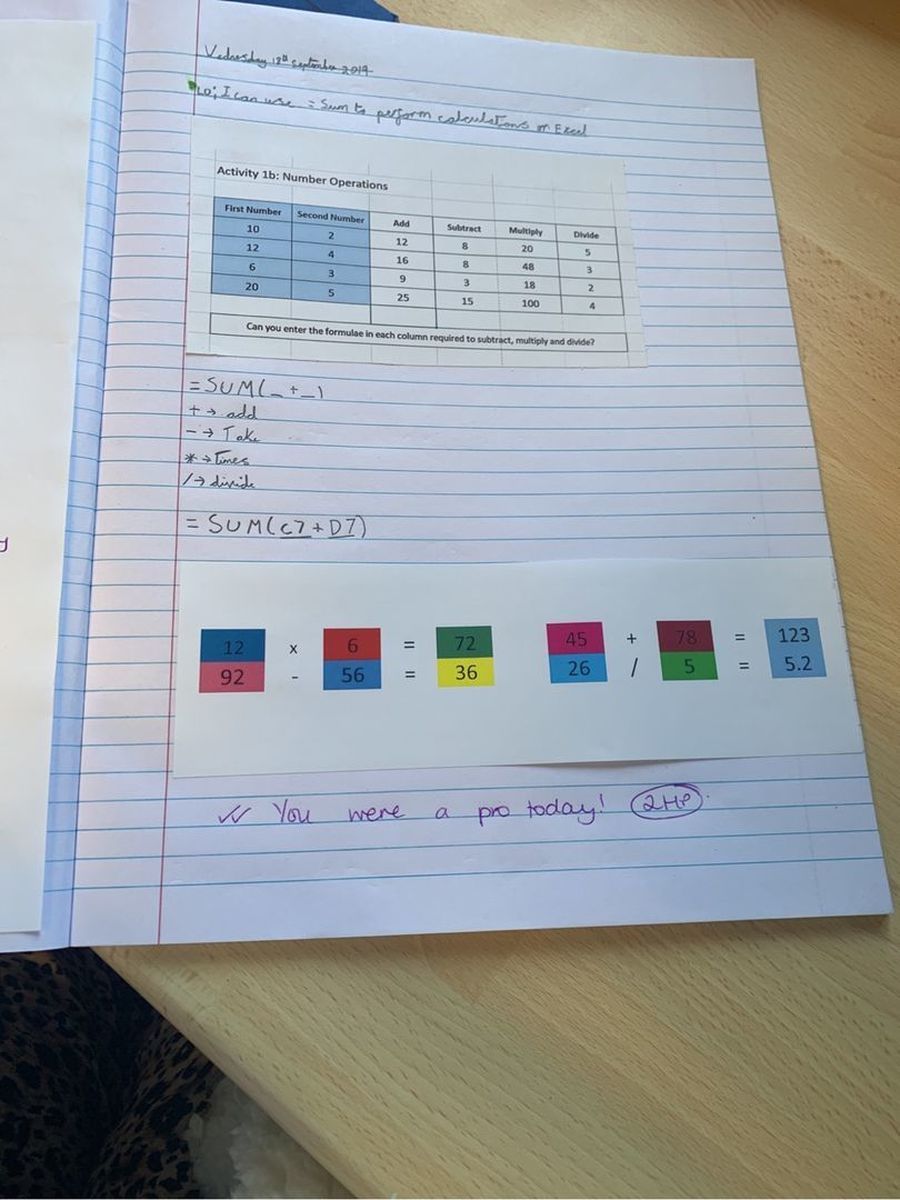 Wednesday 18th September 2019
LO: I can use =Sum to perform calculations on Excel
Activity 1b: Number Operations
First Number Second Number Add Subtract Multiply Divide
10 2 12 8 20 5
12 4 16 8 48 3
6 3 9 3 18 2
20 5 25 15 100 4
Can you enter the formulae in each column required to subtract, multiply and divide?
=SUM(_+_)
+ → add
- → Take
* → Times
/ → divide
= SUM(C7+D7)
12 x 6 = 72 45 + 78 = 123
92 - 56 = 36 26 / 5 = 5.2
✓✓ You were a pro today! 2HP